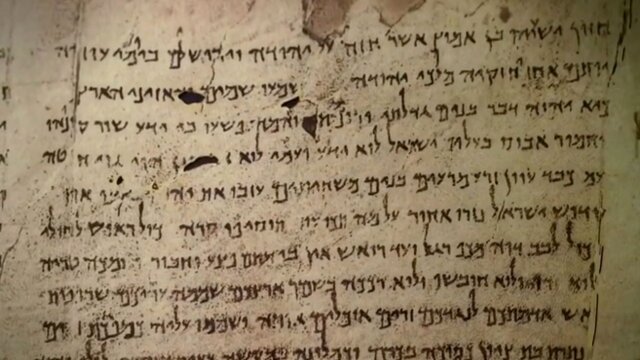 חזון ישעיהו בן אמוץ אשר חזה על יהודה וירושלם ביומי עוזיה
יותם אחז יחזקיה מלכי יהודה שמעו שמים והאזינו הארץ
כיא יהוה דבר בנים גדלתי והמה פשעו בי ידע שור קונהו
וחמור אבוס בעליו ישראל לוא ידע ועמי לוא הוי גוי
עם כבד עוון זרע מרעים בנים משחיתים עזבו את
קדוש ישראל נזרו אחור על מה סרה כול ראוש לחולי
וכול לבב דוה מכף רגל ועד רואש אין בו מתם פצע וחבורה ומכה טריה
לוא ולוא חובשו ולוא רככה בשמן ארצכם שממה עריכם שרופות
אש אדמתכם לנגדכם זרים אוכלים אותה ושממו עליה
בת ציון כסוכה בכרם וכמלונה